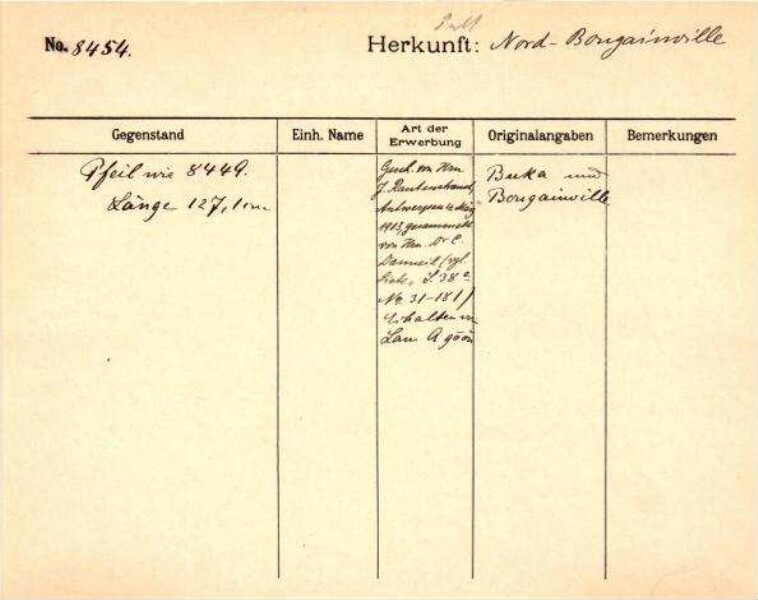 No. 8454.
Herkunft: Nord-Bougainville
Gegenstand
Einh. Name
Art der Erwerbung
Originalangaben
Bemerkungen
Pfeil wie 8449.
Länge 127,1 cm
Gesch. von Hrn
J. Rautenstrauch,
Antwerpen
1913, gesammelt
von Hrn. Dr.
S. 38
No 31-181)
Erhalten
Buka und
Bougainville